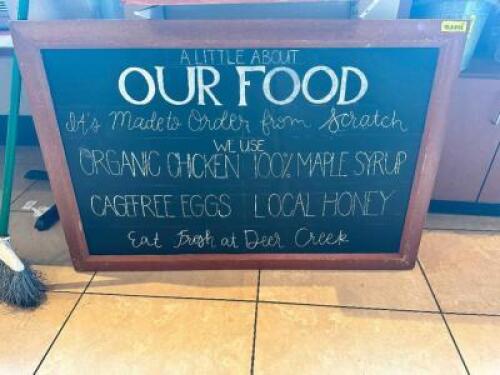 A LITTLE ABOUT
OUR FOOD
It's Made to Order from Scratch
WE USE
ORGANIC CHICKEN 100% MAPLE SYRUP
CAGEFREE EGGS LOCAL HONEY
Eat Fresh at Deer Creek